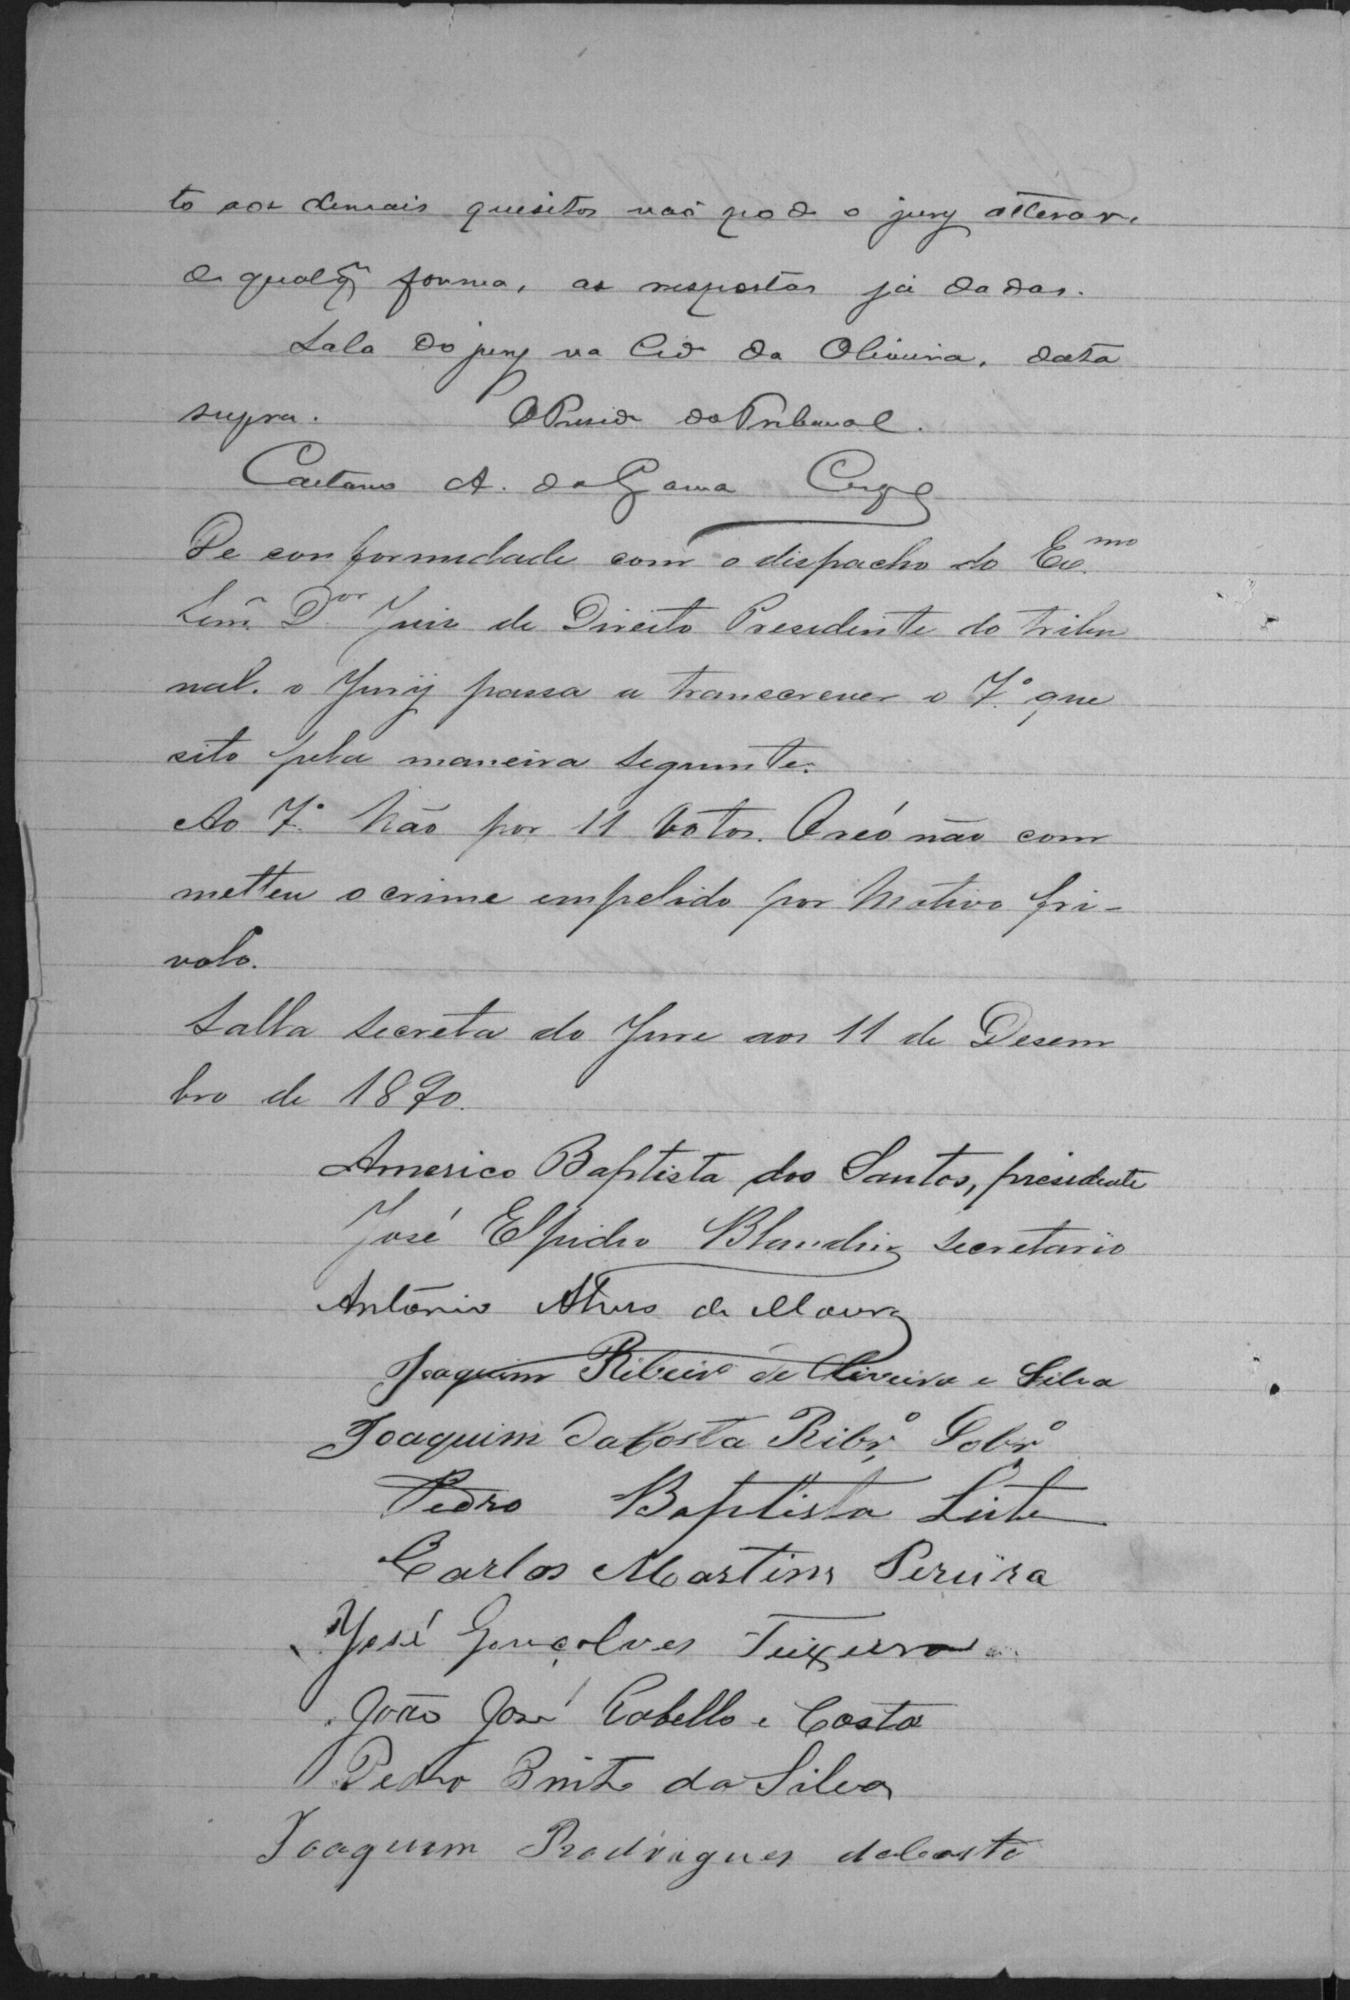 to aos demais quesitos naõ pode o jury alterar,
de qualqr forma, as respostas já dadas.
Sala do jury na Cid da Oliveira, data
supra. O Presid do Tribunal.
Caetano A. da Gama Cerq
De conformidade com o dispacho do Ex.mo
Senr. Dor Juis de Direito Presidente do tribu
nal. o Jury passa a transcrever o 7.º que
sito pela maneira seguinte:
Ao 7.º Não por 11 votos. O reó não com
metteu o crime empelido por Motivo fri-
volo.
Salla secreta do Jure aos 11 de Desem
bro de 1890.
Americo Baptista dos Santos, presidente
José Elpidio Blandin secretario
Antônio Alves de Moura
Joaquim Ribeiro de Oliveira e Silva
Joaquim da Costa Ribrº Sobrº
Pedro Baptista Leite
Carlos Martins Pereira
José Gonçalves Teixeira
João José Rabello e Costa
Pedro Brito da Silva
Joaquim Rodrigues da Costa